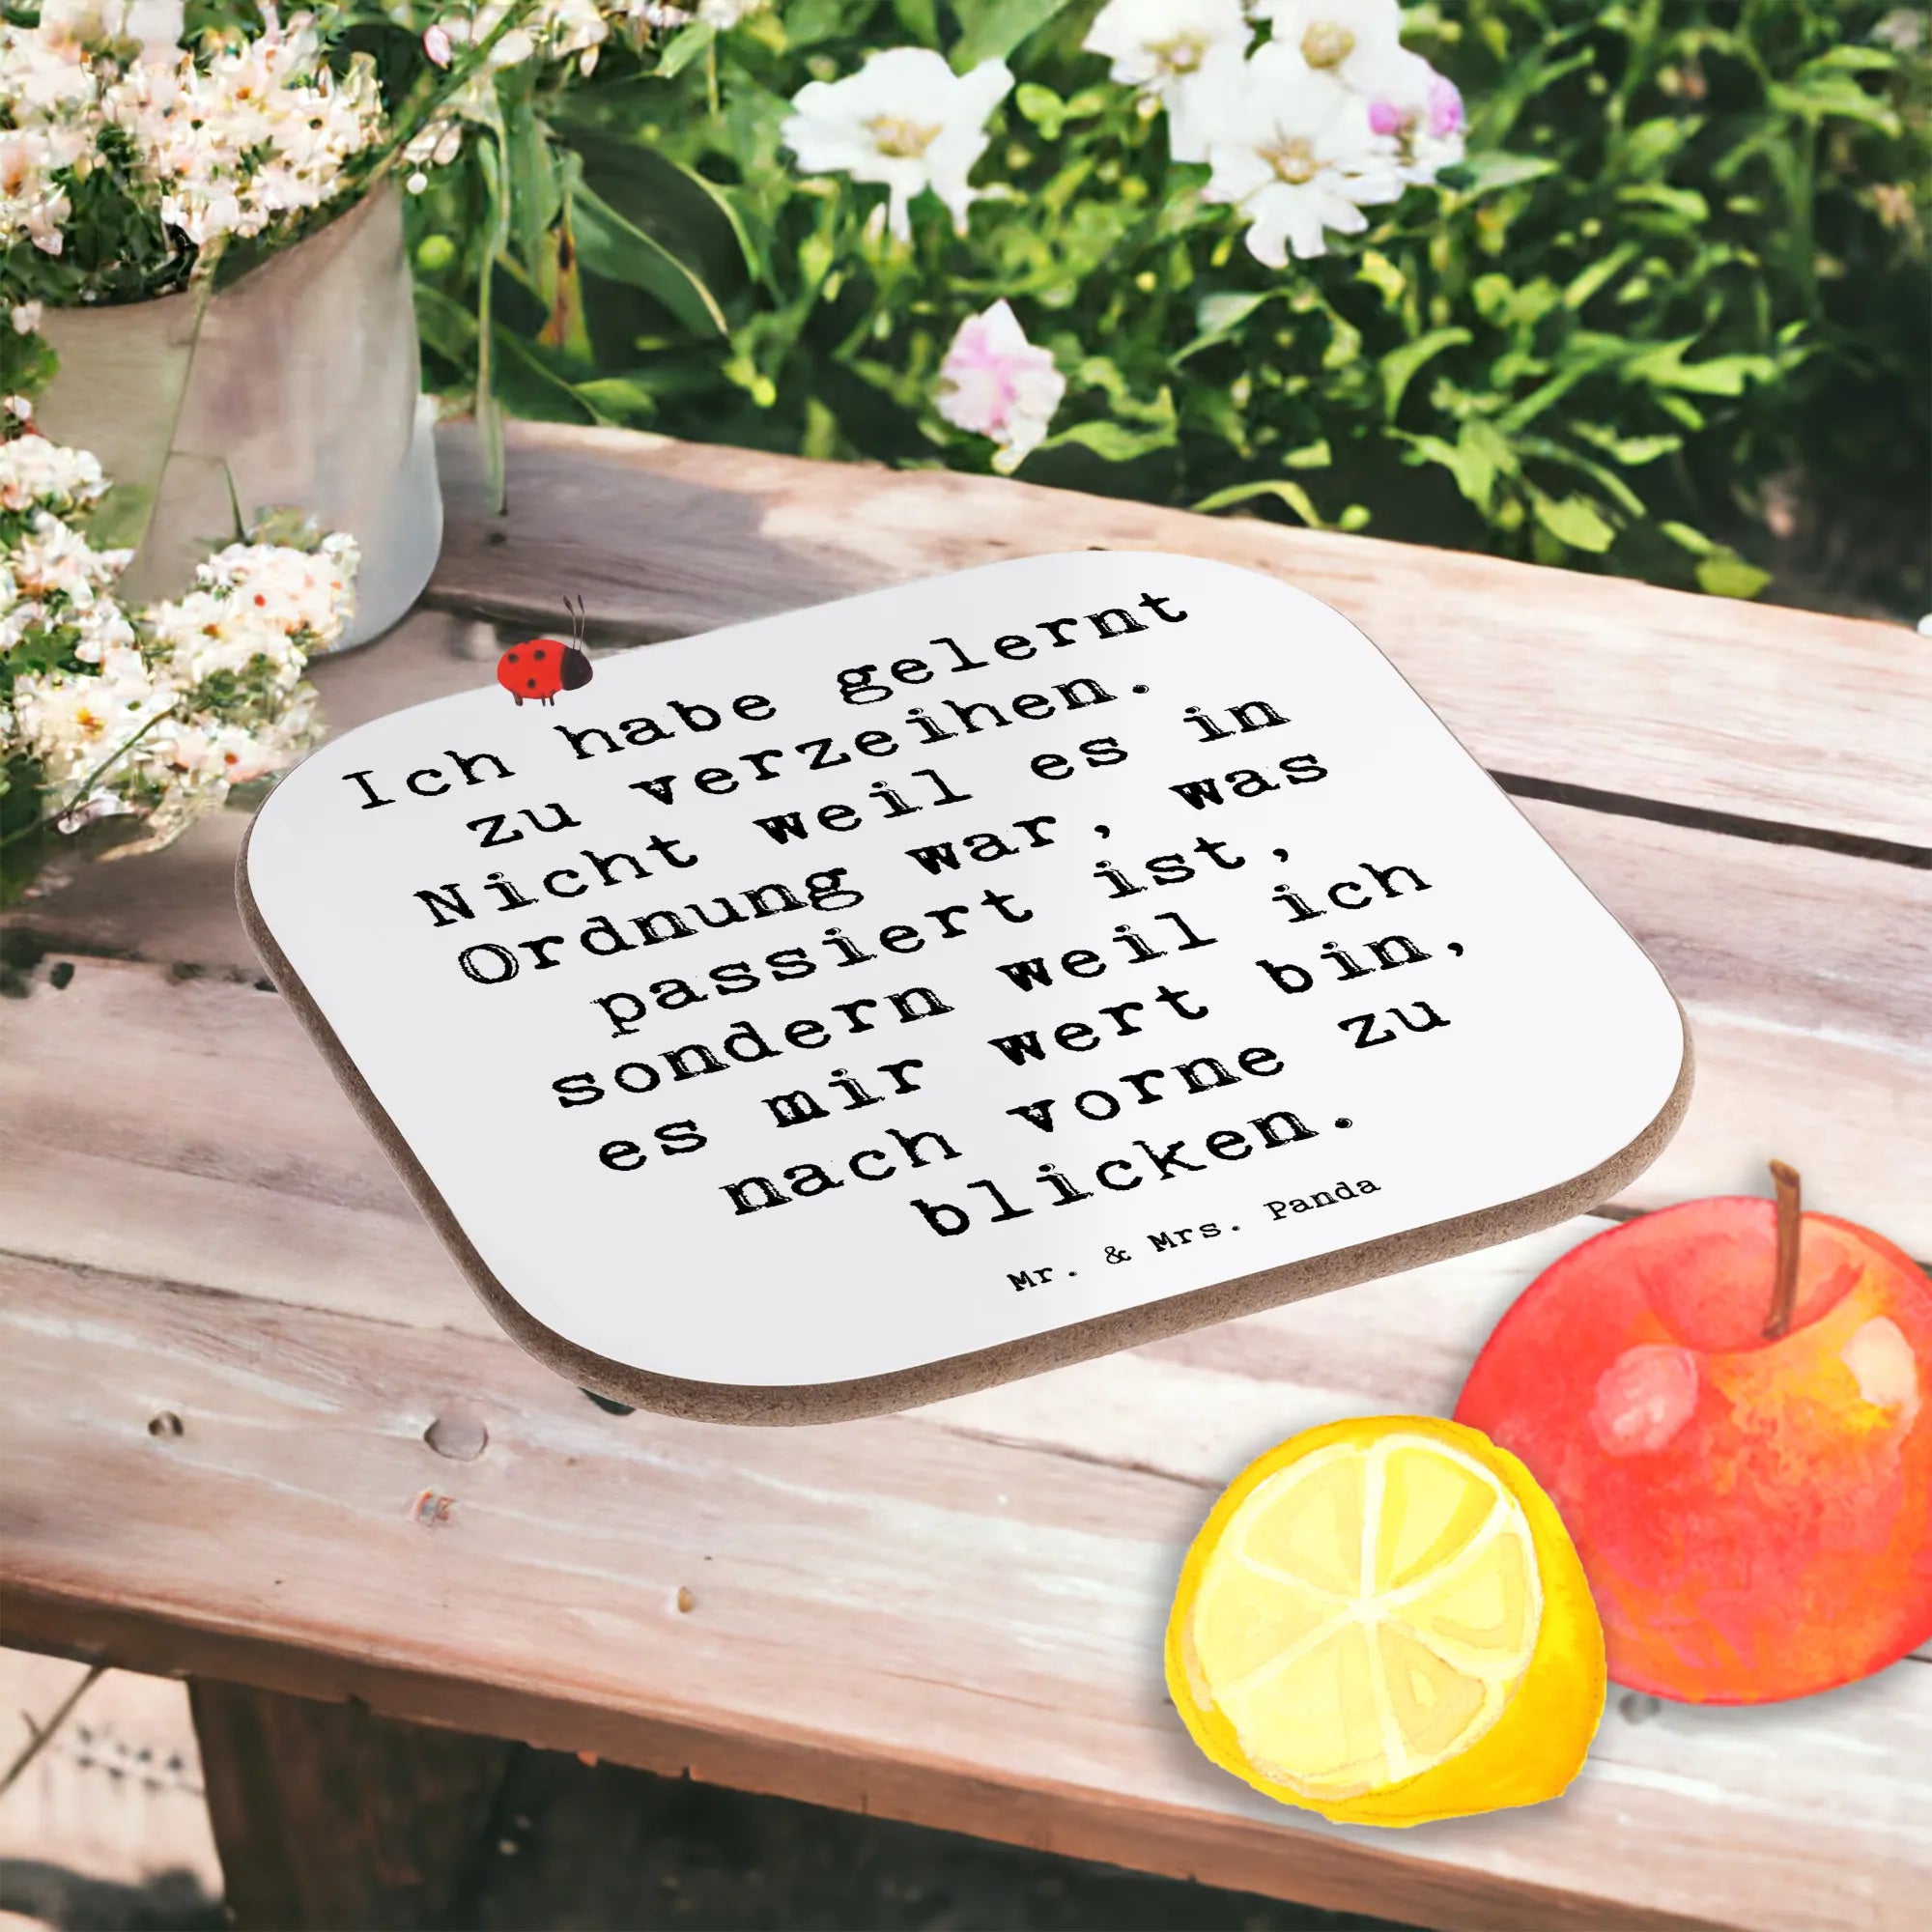 Ich habe gelernt
zu verzeihen.
Nicht weil es in
Ordnung war, was
passiert ist,
sondern weil ich
es mir wert bin,
nach vorne zu
blicken.
Mr. & Mrs. Panda